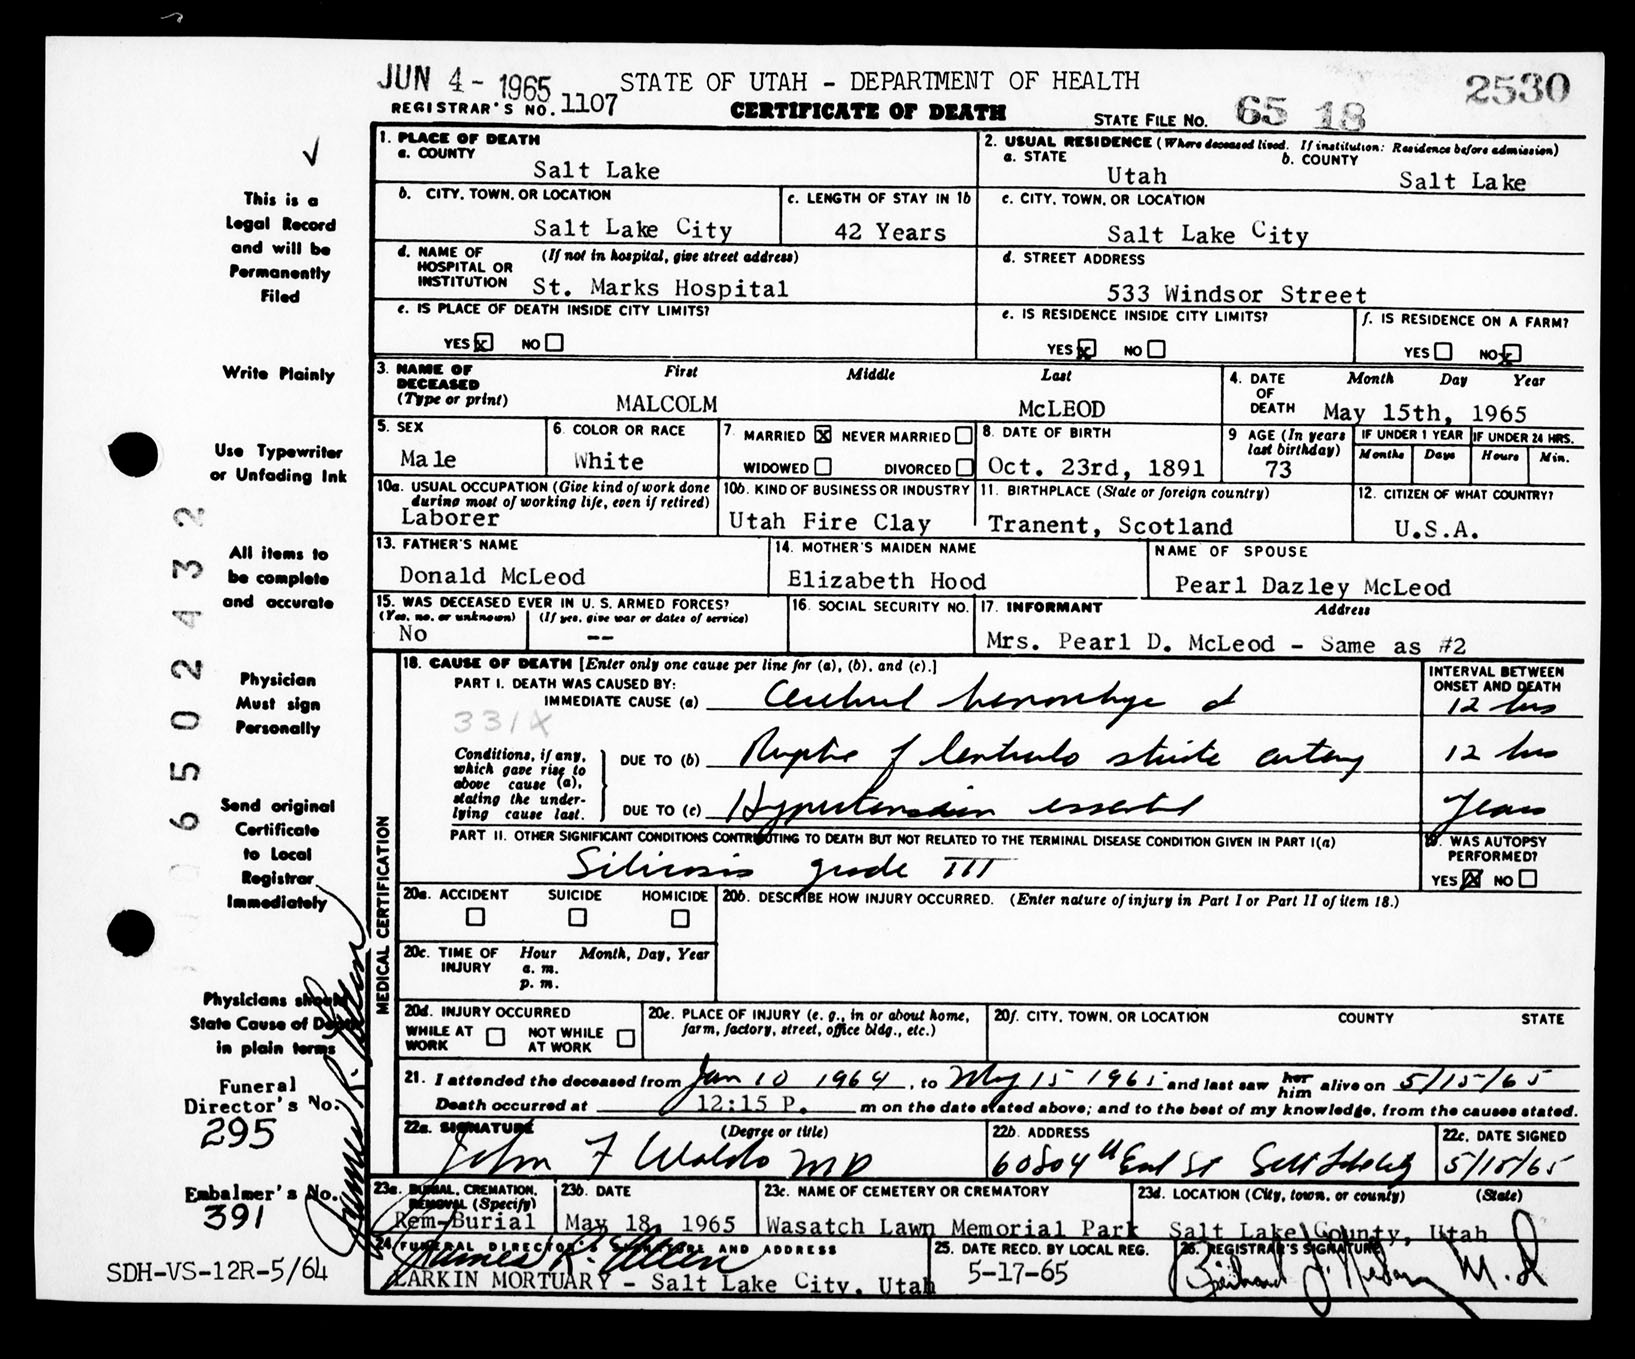 JUN 4 - 1965 STATE OF UTAH - DEPARTMENT OF HEALTH 2530
REGISTRAR'S NO. 1107 CERTIFICATE OF DEATH STATE FILE NO. 65 18
1. PLACE OF DEATH
a. COUNTY
Salt Lake
2. USUAL RESIDENCE (Where deceased lived. If institution: Residence before admission)
a. STATE b. COUNTY
Utah Salt Lake
b. CITY, TOWN, OR LOCATION
Salt Lake City
c. LENGTH OF STAY IN 1b
42 Years
c. CITY, TOWN, OR LOCATION
Salt Lake City
d. NAME OF HOSPITAL OR INSTITUTION (If not in hospital, give street address)
St. Marks Hospital
d. STREET ADDRESS
533 Windsor Street
e. IS PLACE OF DEATH INSIDE CITY LIMITS?
YES x NO
e. IS RESIDENCE INSIDE CITY LIMITS?
YES x NO
f. IS RESIDENCE ON A FARM?
YES NO x
3. NAME OF DECEASED (Type or print) First Middle Last
MALCOLM McLEOD
4. DATE OF DEATH Month Day Year
May 15th, 1965
5. SEX
Male
6. COLOR OR RACE
White
7. MARRIED x NEVER MARRIED
WIDOWED DIVORCED
8. DATE OF BIRTH
Oct. 23rd, 1891
9 AGE (In years last birthday)
73
IF UNDER 1 YEAR IF UNDER 24 HRS.
Months Days Hours Min.
10a. USUAL OCCUPATION (Give kind of work done during most of working life, even if retired)
Laborer
10b. KIND OF BUSINESS OR INDUSTRY
Utah Fire Clay
11. BIRTHPLACE (State or foreign country)
Tranent, Scotland
12. CITIZEN OF WHAT COUNTRY?
U.S.A.
13. FATHER'S NAME
Donald McLeod
14. MOTHER'S MAIDEN NAME
Elizabeth Hood
NAME OF SPOUSE
Pearl Dazley McLeod
15. WAS DECEASED EVER IN U. S. ARMED FORCES?
(Yes, no, or unknown) (If yes, give war or dates of service)
No --
16. SOCIAL SECURITY NO.
17. INFORMANT Address
Mrs. Pearl D. McLeod - Same as #2
MEDICAL CERTIFICATION
18. CAUSE OF DEATH [Enter only one cause per line for (a), (b), and (c).]
INTERVAL BETWEEN ONSET AND DEATH
PART I. DEATH WAS CAUSED BY:
IMMEDIATE CAUSE (a) Cerebral hemorrhage d 12 hrs
331X
Conditions, if any, which gave rise to above cause (a), stating the underlying cause last.
DUE TO (b) Rupture of lenticulo striate artery 12 hrs
DUE TO (c) Hypertension essential Years
PART II. OTHER SIGNIFICANT CONDITIONS CONTRIBUTING TO DEATH BUT NOT RELATED TO THE TERMINAL DISEASE CONDITION GIVEN IN PART I(a)
Silicosis grade III
19. WAS AUTOPSY PERFORMED?
YES x NO
20a. ACCIDENT SUICIDE HOMICIDE
20b. DESCRIBE HOW INJURY OCCURRED. (Enter nature of injury in Part I or Part II of item 18.)
20c. TIME OF INJURY Hour Month, Day, Year
a. m.
p. m.
20d. INJURY OCCURRED
WHILE AT WORK NOT WHILE AT WORK
20e. PLACE OF INJURY (e. g., in or about home, farm, factory, street, office bldg., etc.)
20f. CITY, TOWN, OR LOCATION COUNTY STATE
21. I attended the deceased from Jan 10 1964, to May 15 1965 and last saw her him alive on 5/15/65
Death occurred at 12:15 P. m on the date stated above; and to the best of my knowledge, from the causes stated.
22a. SIGNATURE (Degree or title)
John F Waldo MD
22b. ADDRESS
508 04th East St Salt Lake City
22c. DATE SIGNED
5/15/65
23a. BURIAL, CREMATION, REMOVAL (Specify)
Rem-Burial
23b. DATE
May 18, 1965
23c. NAME OF CEMETERY OR CREMATORY
Wasatch Lawn Memorial Park
23d. LOCATION (City, town, or county) (State)
Salt Lake County, Utah
24. FUNERAL DIRECTOR'S SIGNATURE AND ADDRESS
James R. Allen
LARKIN MORTUARY - Salt Lake City, Utah
25. DATE RECD. BY LOCAL REG.
5-17-65
26. REGISTRAR'S SIGNATURE
M.D
This is a
Legal Record
and will be
Permanently
Filed
Write Plainly
Use Typewriter
or Unfading Ink
All items to
be complete
and accurate
Physician
Must sign
Personally
Send original
Certificate
to Local
Registrar
Immediately
Physicians should
State Cause of Death
in plain terms
Funeral
Director's No.
295
Embalmer's No.
391
James R. Allen
SDH-VS-12R-5/64
6502432